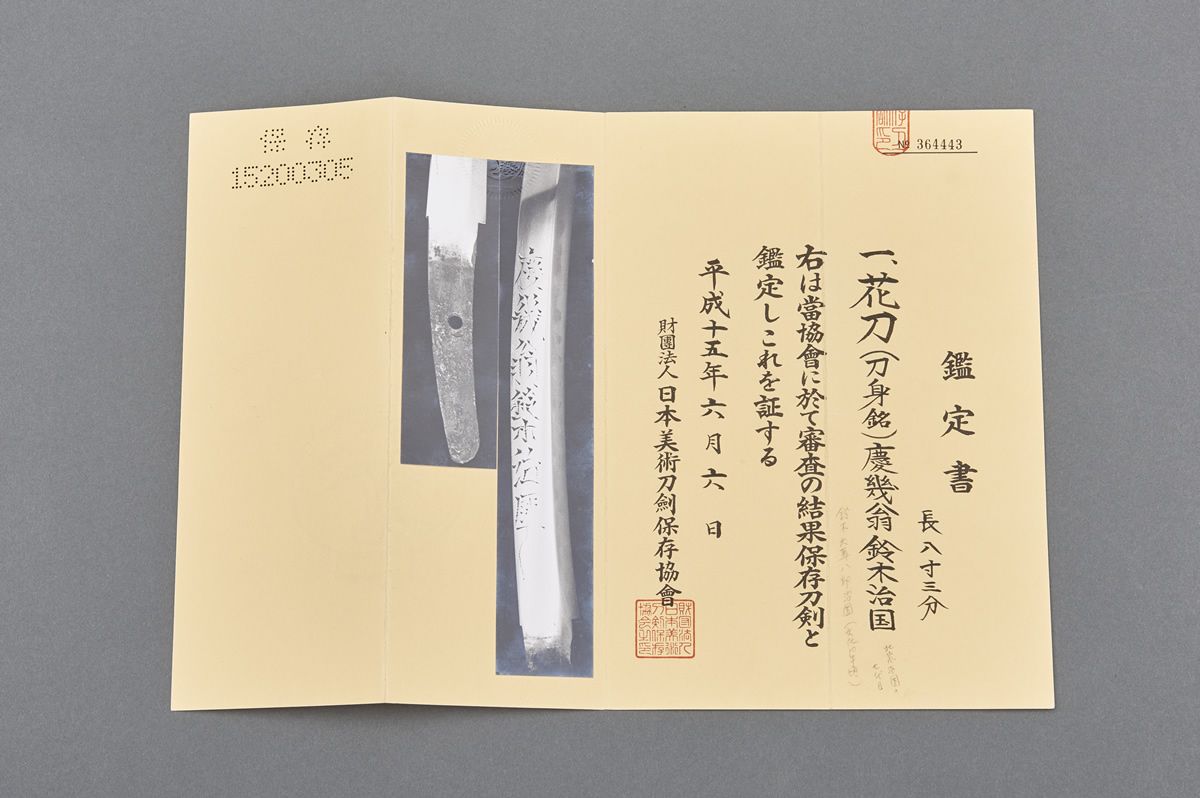 保存
15200305
No 364443
鑑定書
長八寸三分
一、花刀（刀身銘）慶幾翁鈴木治国
右は當協會に於て審査の結果保存刀剣と
鑑定しこれを証する
平成十五年六月六日
財團法人 日本美術刀劍保存協會
財団法人
日本美術
刀剣保存
協会之印